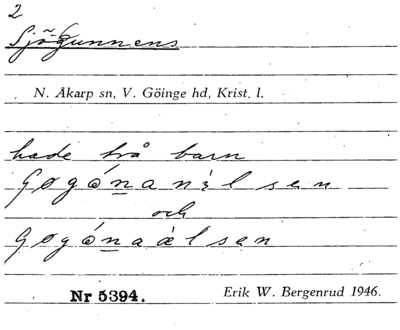 2
Sjögunnens
N. Åkarp sn, V. Göinge hd, Krist. l.
hade två barn
och
Nr 5394.
Erik W. Bergenrud 1946.